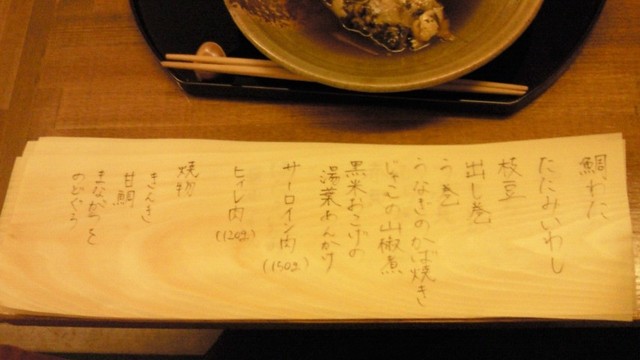 鯛わた
たたみいわし
枝豆
出し巻
う巻
うなぎのかば焼き
じゃこの山椒煮
黒米おこげの
湯葉あんかけ
サーロイン肉(150g)
ヒィレ肉(120g)
焼物
きんき
甘鯛
まながつを
のどぐろ